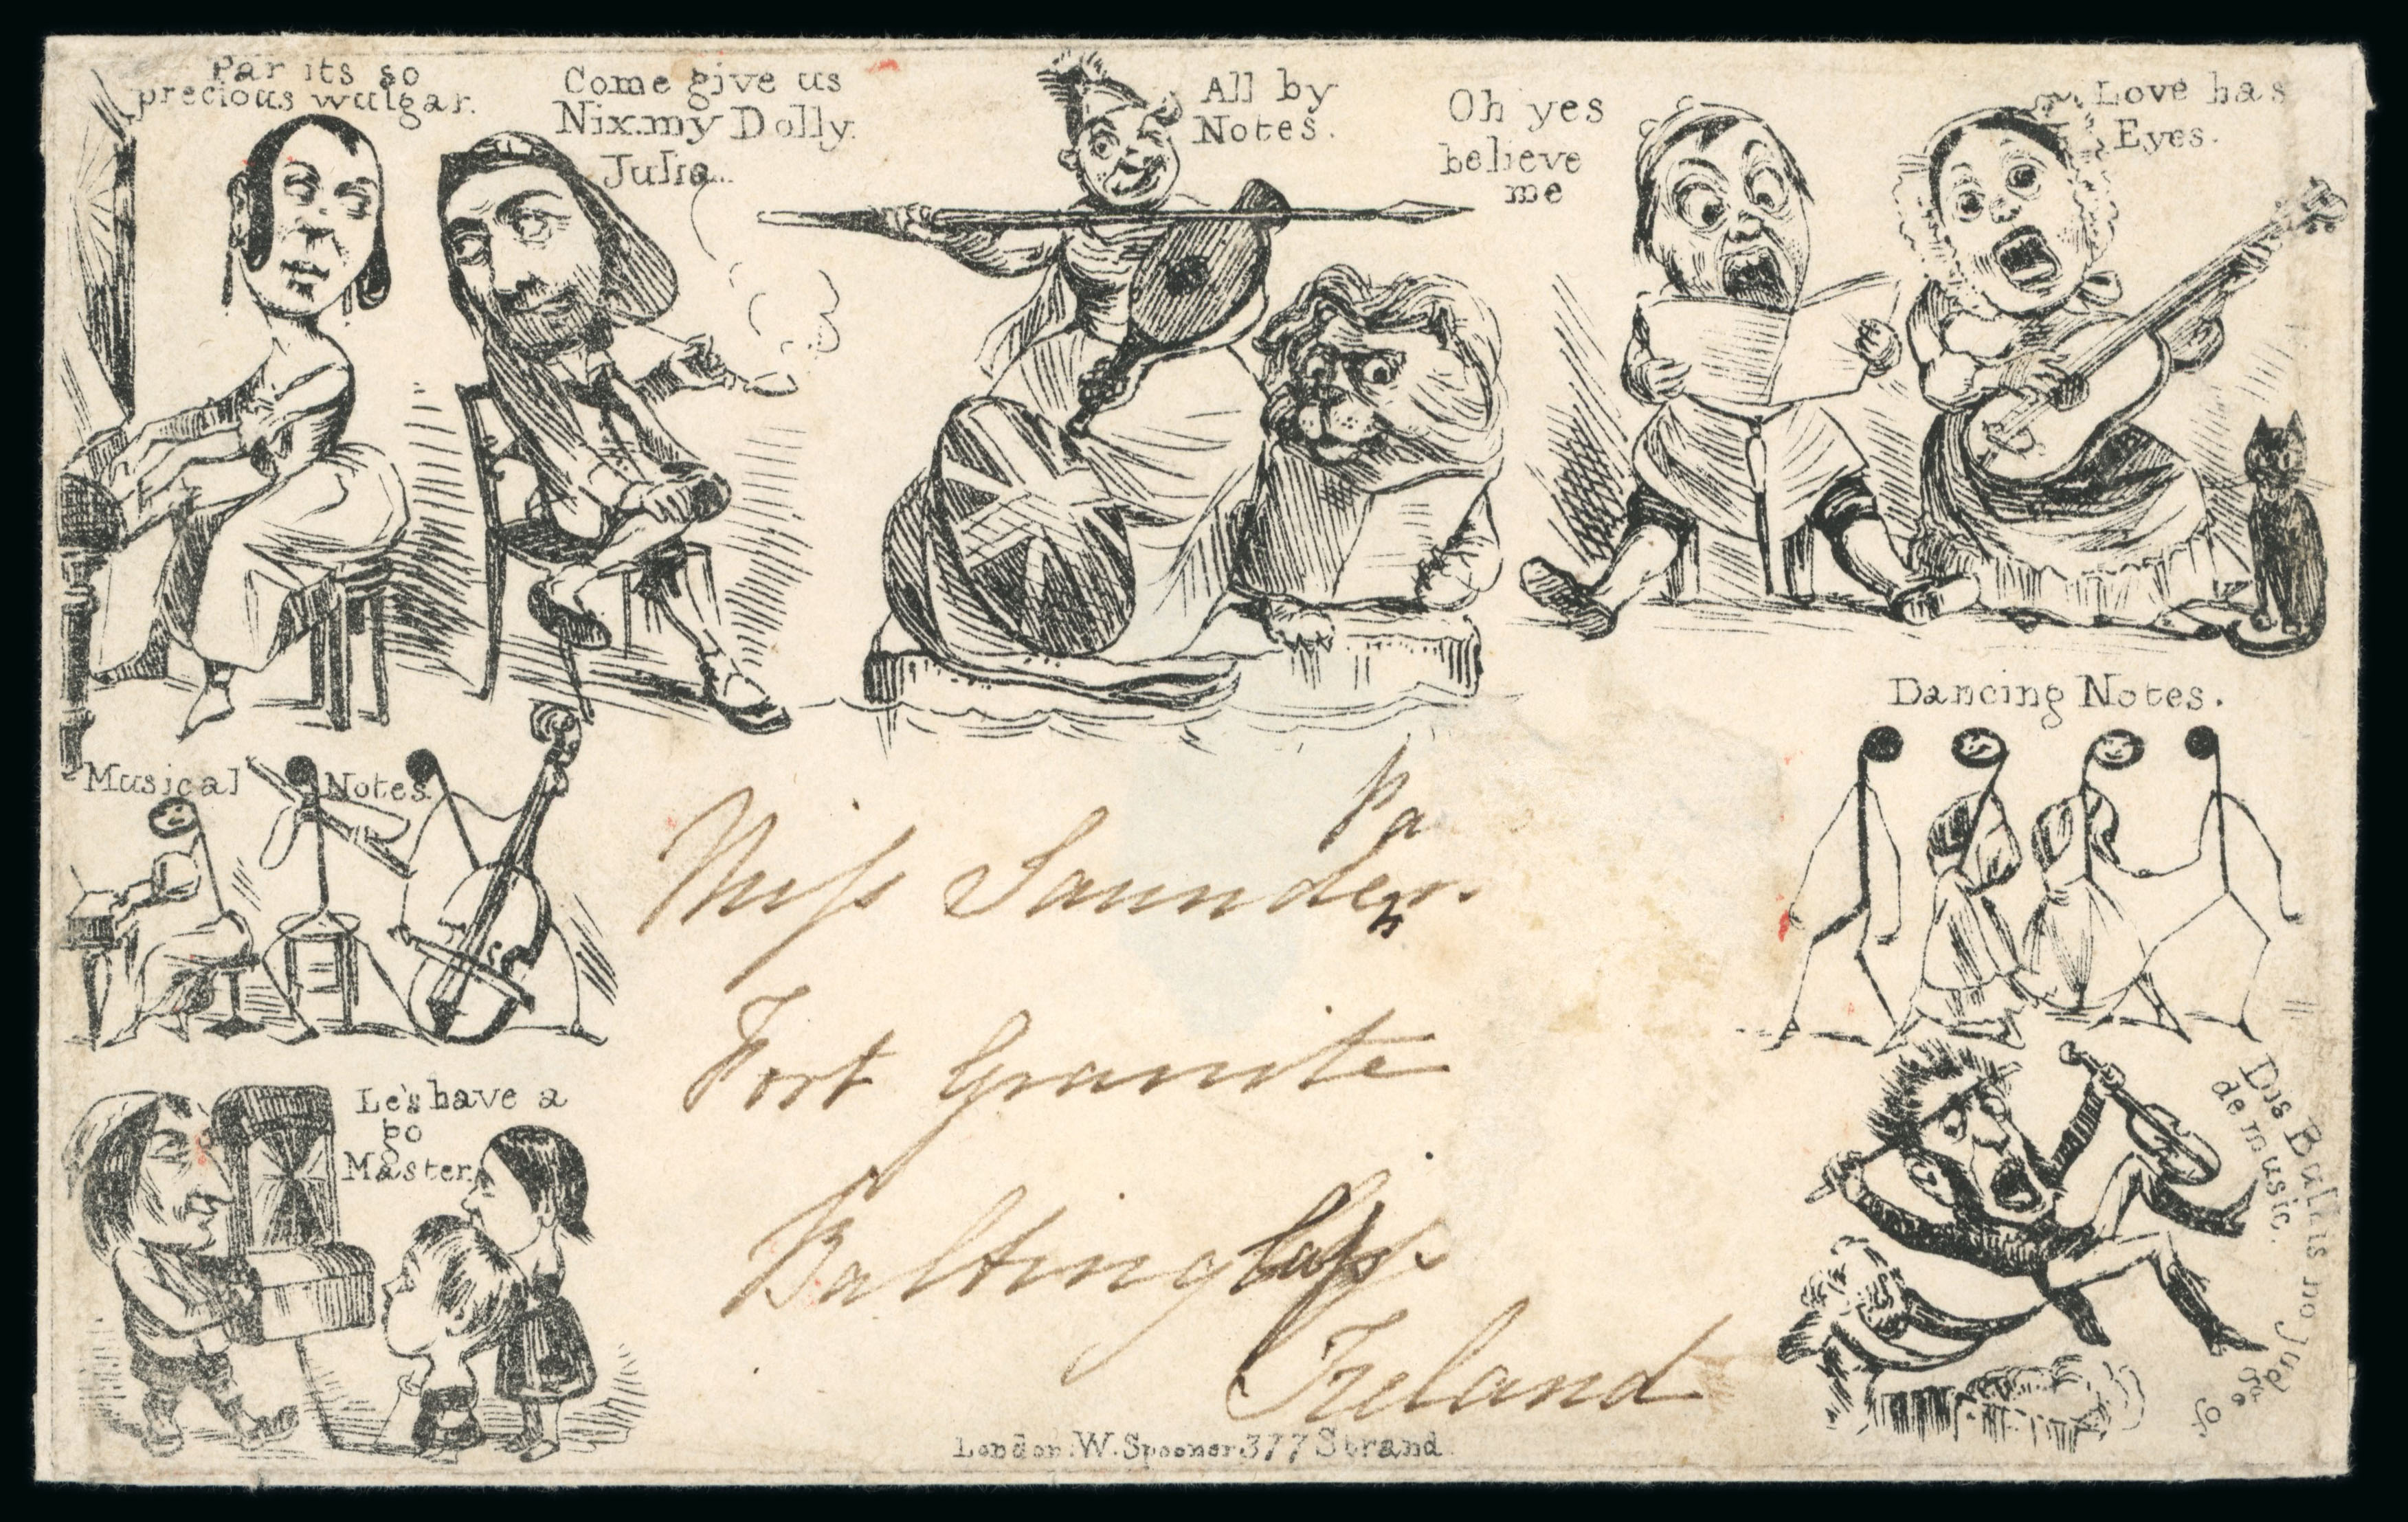 Par its so
precious wulgar.
Come give us
Nix my Dolly.
Julia...
All by
Notes.
Oh yes
believe
me
Love has
Eyes.
Musical Notes.
Dancing Notes.
Pa
Miss Saunders.
Fort Granite
Baltinglass
Ireland
Le's have a
go
Master
Dis Bul is no Jud
ge of
de music.
London. W. Spooner 377 Strand.